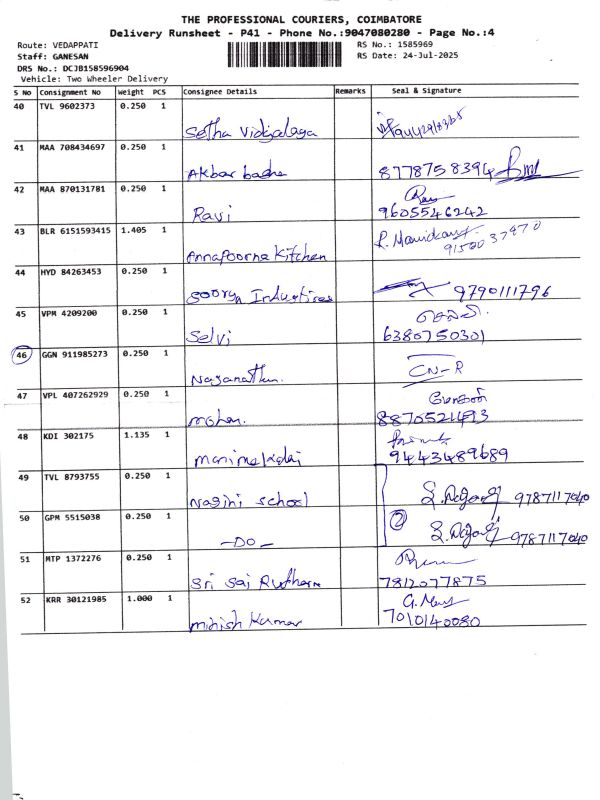 THE PROFESSIONAL COURIERS, COIMBATORE
Delivery Runsheet - P41 - Phone No.:9047080280 - Page No.:4
Route: VEDAPPATI RS No.: 1585969
Staff: GANESAN RS Date: 24-Jul-2025
DRS No.: DCJB158596904
Vehicle: Two Wheeler Delivery
S No Consignment No Weight PCS Consignee Details Remarks Seal & Signature
40 TVL 9602373 0.250 1
Setha Vidyalaya
41 MAA 708434697 0.250 1
Akbar badha 8778758394
42 MAA 870131781 0.250 1
Ravi 9605546242
43 BLR 6151593415 1.405 1
Annapoorna Kitchen R. Manikan 9150037870
44 HYD 84263453 0.250 1
Soorya Industries 9790111796
45 VPM 4209200 0.250 1 செல்வி
Selvi 6380750301
46 GGN 911985273 0.250 1 CN-R
Naganathan.
47 VPL 407262929 0.250 1 மோகன்
mohan. 8870521493
48 KDI 302175 1.135 1
manimekalai 9443489689
49 TVL 8793755 0.250 1
Nagini school 9787117040
50 GPM 5515038 0.250 1 2
-DO- 9787117040
51 MTP 1372276 0.250 1
Sri Sai 7812077875
52 KRR 30121985 1.000 1
mithish Kumar 7010140080